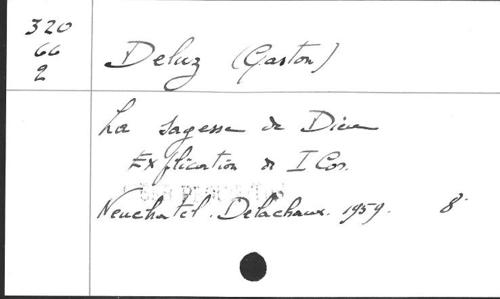 320
66
2
Deluz (Gaston)
La sagesse de Dieu
Explication de I Cor.
Neuchatel. Delachaux. 1959. 8°